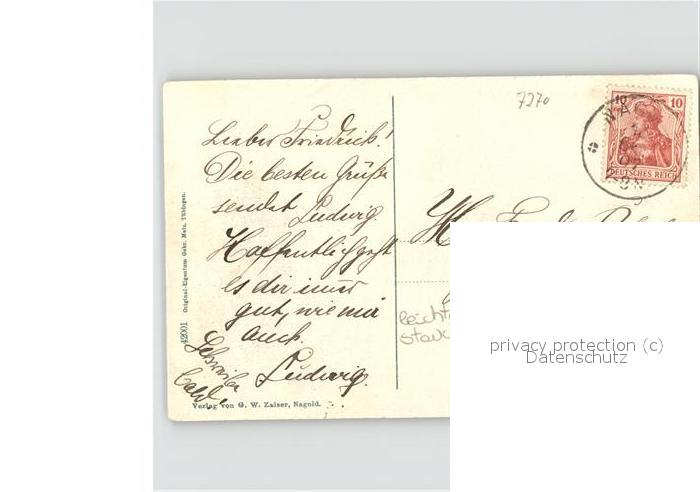 7270
10 10
DEUTSCHES REICH
Lieber Friedrich!
Die besten Grüße
sendet Ludwig
Hoffentlich geht
es dir immer
gut, wie mir
auch.
Ludwig.
Schreibe
bald.
42001 Original-Eigentum Gebr. Metz, Tübingen.
Verlag von G. W. Zaiser, Nagold.
privacy protection (c)
Datenschutz